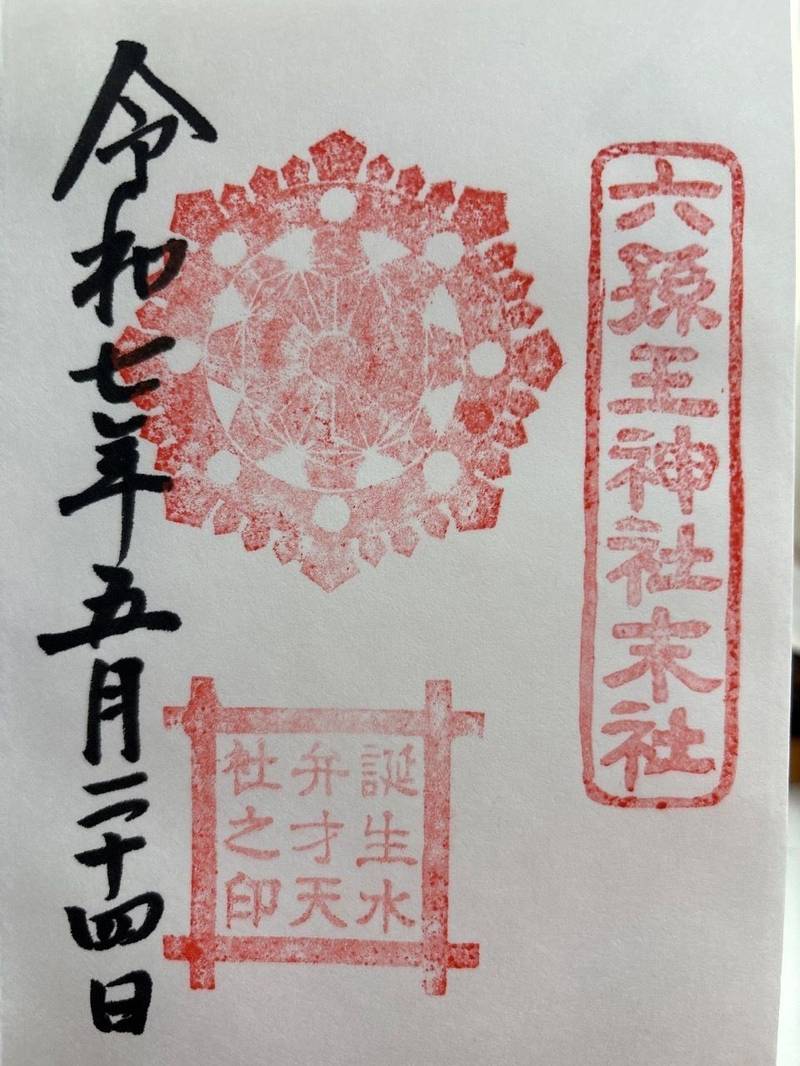 六孫王神社末社
誕生水
弁才天
社之印
令和七年五月二十四日